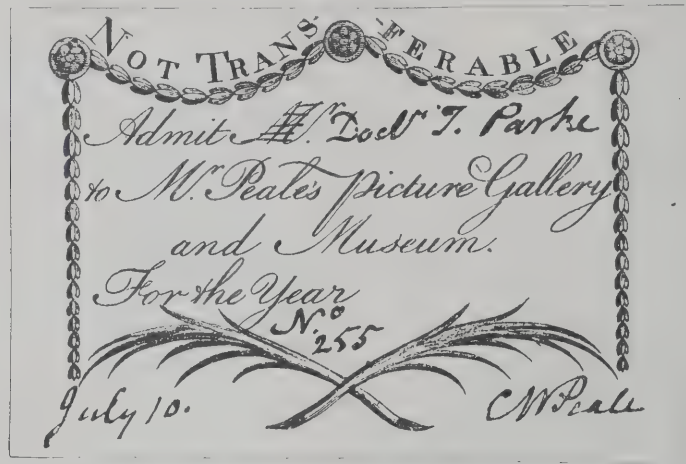 NOT TRANS-
-FERABLE
Admit Mr. Docr. T. Parke
to Mr. Peale's Picture Gallery
and Museum.
For the Year
No.
255
July 10.
CWPeale